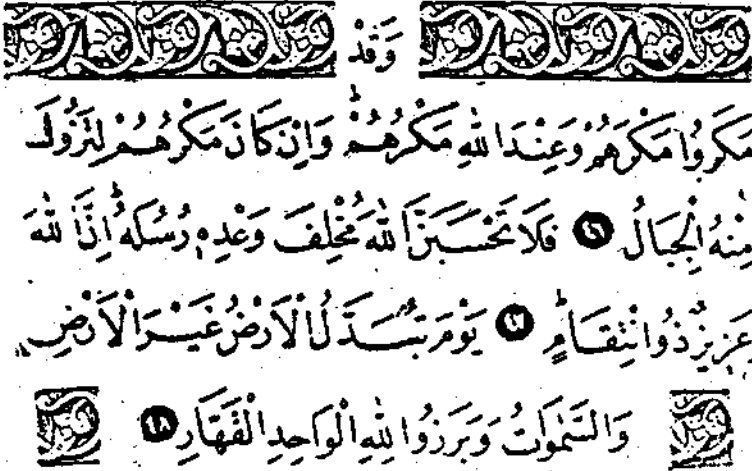 وَقَدْ
مَكَرُوا مَكْرَهُمْ وَعِنْدَ اللّٰهِ مَكْرُهُمْۜ وَاِنْ كَانَ مَكْرُهُمْ لِتَزُولَ
مِنْهُ الْجِبَالُ ﴿٤٦﴾ فَلَا تَحْسَبَنَّ اللّٰهَ مُخْلِفَ وَعْدِه۪ رُسُلَهُۜ اِنَّ اللّٰهَ
عَز۪يزٌ ذُو انْتِقَامٍۜ ﴿٤٧﴾ يَوْمَ تُبَدَّلُ الْاَرْضُ غَيْرَ الْاَرْضِ
وَالسَّمٰوَاتُ وَبَرَزُوا لِلّٰهِ الْوَاحِدِ الْقَهَّارِ ﴿٤٨﴾